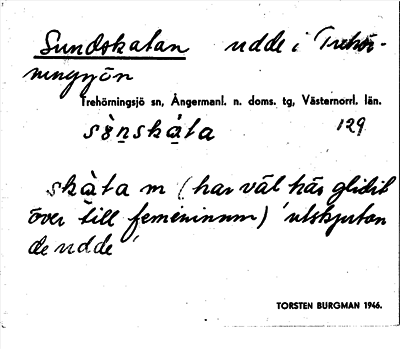 Sundskatan udde i Trehör-
ningsjön
Trehörningsjö sn, Ångermanl. n. doms. tg, Västernorrl. län.
sònskáta 129
skàta m (har väl här glidit
över till femininum) 'utskjutan
de udde'
TORSTEN BURGMAN 1946.